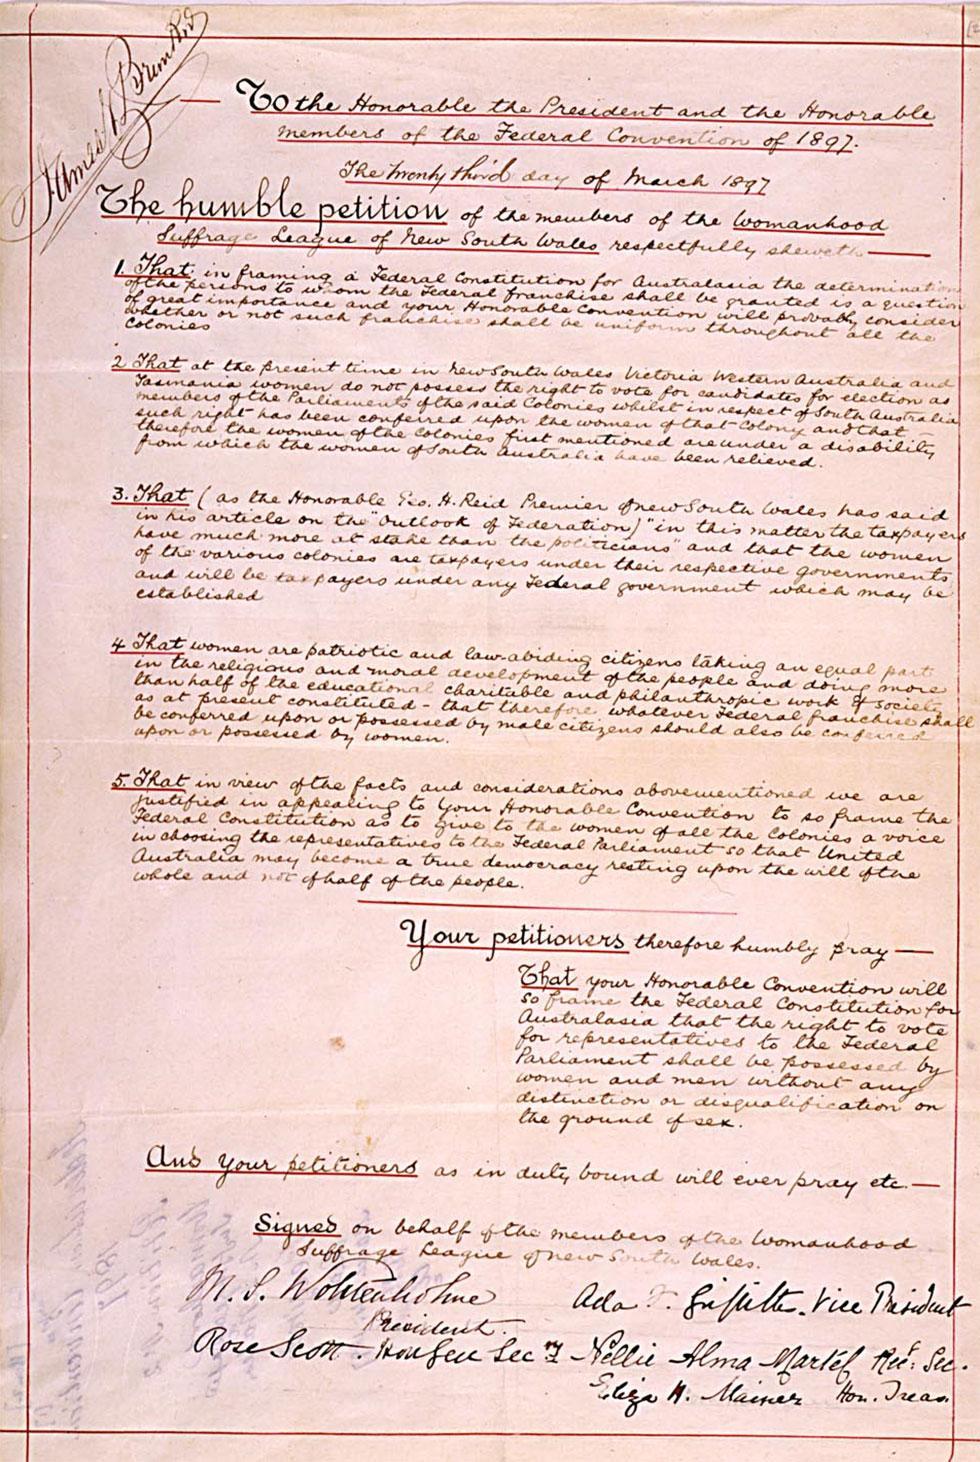 James N Brunker
To the Honorable the President and the Honorable
members of the Federal Convention of 1897.
The twenty third day of March 1897
The humble petition of the members of the Womanhood
Suffrage League of New South Wales respectfully sheweth
1. That in framing a Federal Constitution for Australasia the determination
of the persons to whom the Federal franchise shall be granted is a question
of great importance and your Honorable Convention will probably consider
whether or not such franchise shall be uniform throughout all the
Colonies
2 That at the present time in New South Wales Victoria Western Australia and
Tasmania women do not possess the right to vote for candidates for election as
members of the Parliaments of the said Colonies whilst in respect of South Australia
such right has been conferred upon the women of that Colony and that
therefore the women of the Colonies first mentioned are under a disability
from which the women of South Australia have been relieved.
3. That (as the Honorable Geo. H. Reid Premier of New South Wales has said
in his article on the "Outlook of Federation) "in this matter the taxpayers
have much more at stake than the politicians" and that the women
of the various colonies are taxpayers under their respective governments
and will be taxpayers under any Federal government which may be
established
4 That women are patriotic and law-abiding citizens taking an equal part
in the religious and moral development of the people and doing more
than half of the educational charitable and philanthropic work of society
as at present constituted - that therefore whatever Federal franchise shall
be conferred upon or possessed by male citizens should also be conferred
upon or possessed by women.
5. That in view of the facts and considerations abovementioned we are
justified in appealing to Your Honorable Convention to so frame the
Federal Constitution as to give to the women of all the Colonies a voice
in choosing the representatives to the Federal Parliament so that United
Australia may become a true democracy resting upon the will of the
whole and not of half of the people.
Your petitioners therefore humbly pray
That your Honorable Convention will
so frame the Federal Constitution for
Australasia that the right to vote
for representatives to the Federal
Parliament shall be possessed by
women and men without any
distinction or disqualification on
the ground of sex.
And your petitioners as in duty bound will ever pray etc.
Signed on behalf of the members of the Womanhood
Suffrage League of New South Wales.
M. S. Wolstenholme
President.
Ada Griffiths. Vice President
Rose Scott. Hon Gen Sec
Nellie Alma Martel Rec: Sec.
Eliza H. Mainer Hon. Treas.